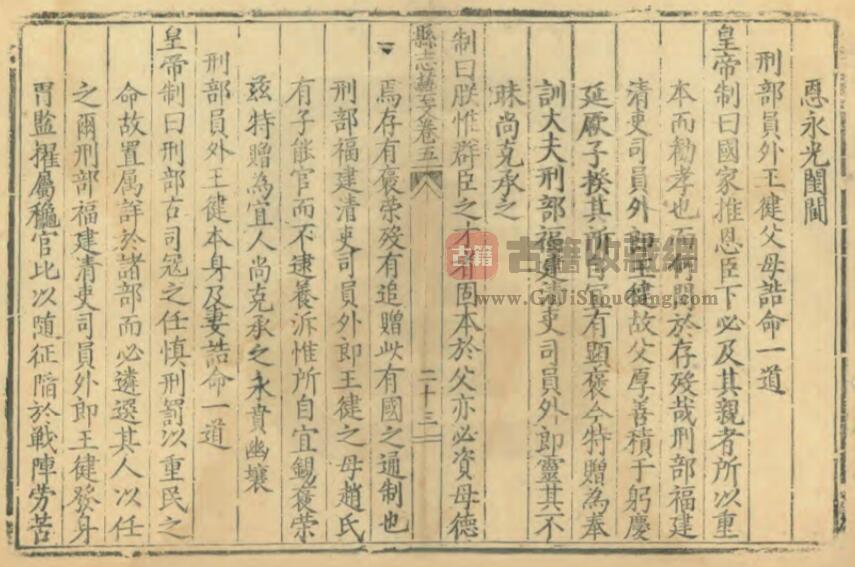 恩永光閨閫
刑部員外王健父母誥命一道
皇帝制曰國家推恩臣下必及其親者所以重
本而勸孝也而何間於存歿哉刑部福建
清吏司員外郎王健故父厚善積于躬慶
延厥子揆其所自宜有顯褒今特贈為奉
訓大夫刑部福建清吏司員外郎靈其不
昧尚克承之
制曰朕惟群臣之才者固本於父亦必資母德
縣志藝文卷五
二十三
焉存有褒荣歿有追贈此有國之通制也
刑部福建清吏司員外郎王健之母趙氏
有子能官而不逮養泝惟所自宜錫褒荣
茲特贈為宜人尚克承之永賁幽壤
刑部員外王健本身及妻誥命一道
皇帝制曰刑部古司冦之任慎刑罰以重民之
命故置属詳於諸部而必遴選其人以任
之爾刑部福建清吏司員外郎王健發身
胃監擢屬秋官比以随征陷於戰陣劳苦
古籍
古籍收藏網
www.GuJiShouCang.com